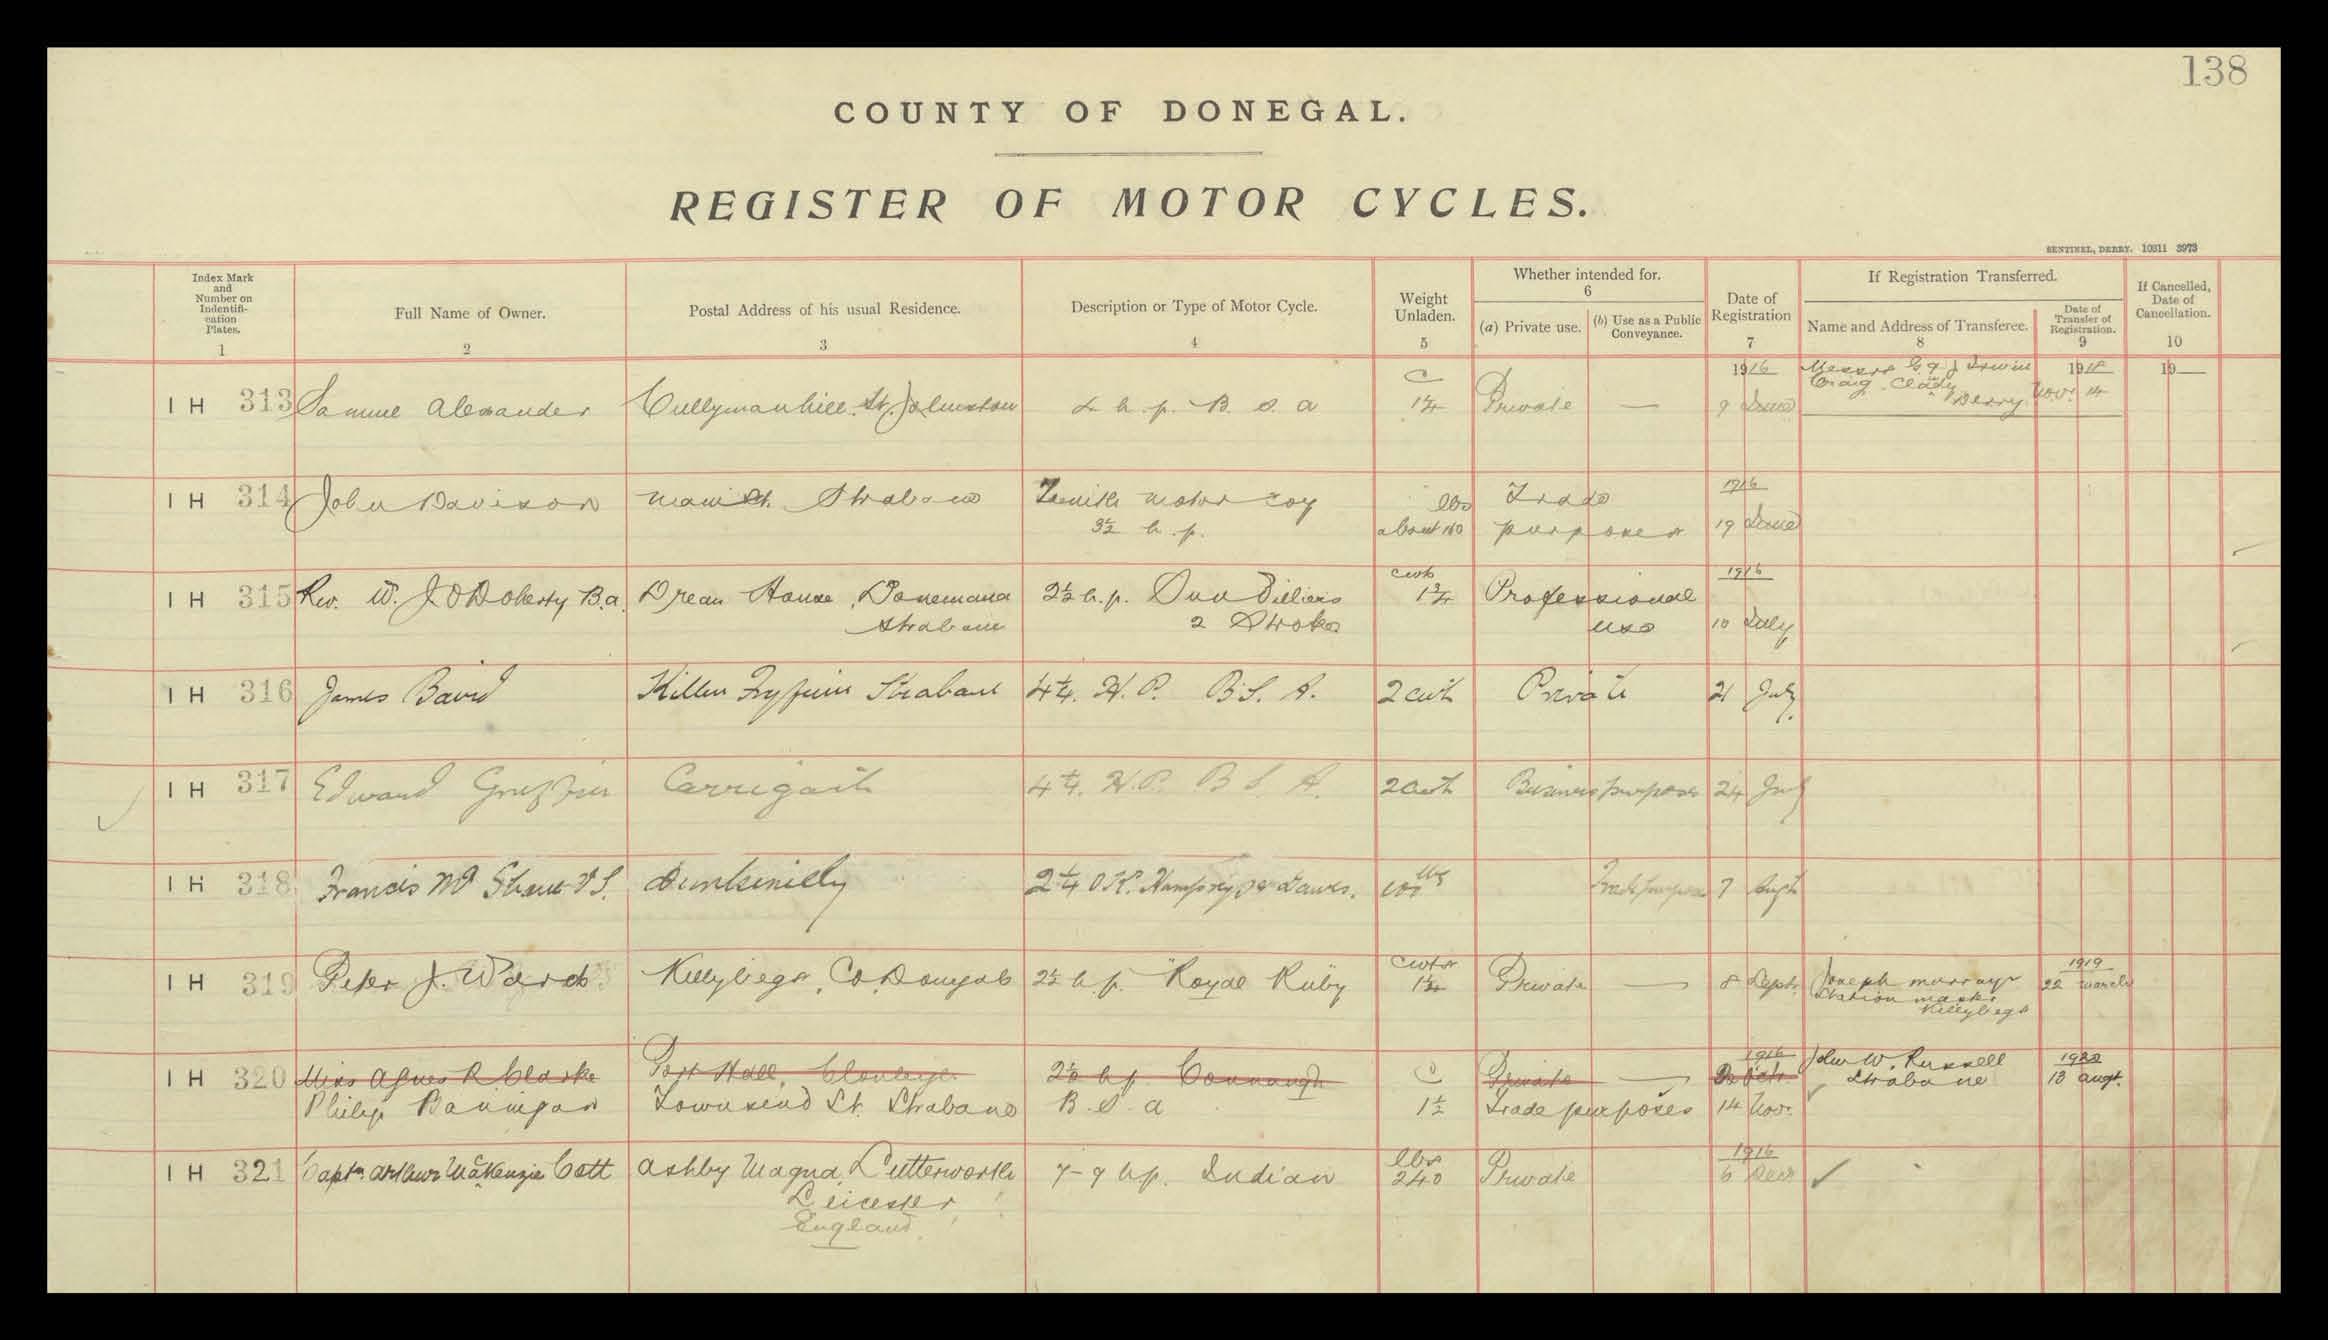 138
COUNTY OF DONEGAL.
REGISTER OF MOTOR CYCLES.
SENTINEL, DERRY. 10311 3973
Index Mark and Number on Indentifi-cation Plates. 1
Full Name of Owner. 2
Postal Address of his usual Residence. 3
Description or Type of Motor Cycle. 4
Weight Unladen. 5
Whether intended for. 6
(a) Private use.
(b) Use as a Public Conveyance.
Date of Registration 7
If Registration Transferred.
Name and Address of Transferee. 8
Date of Transfer of Registration. 9
If Cancelled, Date of Cancellation. 10
1916 Messrs G. & J Irwin 1918 19
IH 313 Samuel Alexander St. Johnston h. p. B. S. A C 1¼ Private — 9 June Craig, Clady Derry Nov. 14
IH 314 John Davison Main St. Strabane Zenith Motor Coy lbs Trade 1916
3½ h. p. about 160 purposes 19 June
IH 315 Rev. W. J O'Doherty B.a. Drean House, Donemana 2½ h.p. Villiers cwts 1¾ Professional 1916
Strabane 2 Stroke use 10 July
IH 316 James Baird Killen Strabane 4¼ H. P. B S. A. 2 cwt Private 21 July
IH 317 Edward Griffin Carrigart 4¼ H. P. B S A. 2 cwt Business purposes 24 July
IH 318 Francis Mc Shane V S. Dunkineely 2¼ O.K. lbs Trade purposes 7 Augt
IH 319 Peter J. Ward Killybegs, Co Donegal 2½ h. p. "Royal Ruby cwts 1¼ Private — 8 Sept. Joseph Murray 1919 22 March
Station master Killybegs
IH 320 Miss Agnes R. Clarke Port Hall, 2½ h p Connaugh C Private — 1916 Octr. John W. Russell 1920
Philip Bannigan Townsend St. Strabane B. S. A 1½ Trade purposes 14 Nov. Strabane 13 Augt.
IH 321 Captn. Arthur McKenzie Cott Ashby Magna, Lutterworth 7-9 h.p. Indian lbs 240 Private 1916 6 Decr
Leicester
England